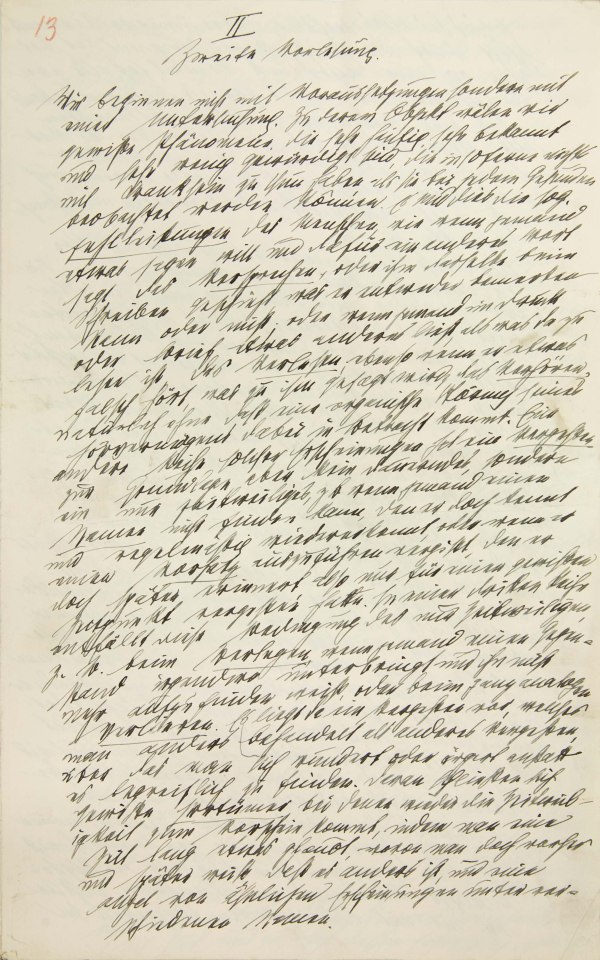 13
II
Zweite Vorlesung.
Wir beginnen nicht mit Voraussetzungen sondern mit
einer Untersuchung. Zu deren Objekt wälen wir
gewisse Phänomene, die sehr häufig, sehr bekannt
und sehr wenig gewürdigt sind, die insoferne nichts
mit Kranksein zu thun haben als sie bei jedem Gesunden
beobachtet werden können. Es sind dies die sog.
Fehlleistungen des Menschen, wie wenn jemand
etwas sagen will und dafür ein anderes Wort
sagt, das Versprechen, oder ihm dasselbe beim
Schreiben geschieht, was er entweder bemerken
kann oder nicht, oder wenn jemand im Druck
oder Brief etwas anderes liest als was da zu
lesen ist, das Verlesen, ebenso wenn er etwas
falsch hört was zu ihm gesagt wird, das Verhören,
natürlich ohne daß eine organische Störung seines
Hörvermögens dabei in Betracht kommt. Eine
andere Reihe solcher Erscheinungen hat ein Vergessen
zur Grundlage, aber kein dauerndes, sondern
ein nur zeitweiliges, zb wenn jemand einen
Namen nicht finden kann, den er doch kennt
und regelmäßig wiedererkennt, oder wenn er
einen Vorsatz auszuführen vergißt, den er
doch später erinnert, also nur für einen gewissen
Zeitpunkt vergessen hatte. In einer dritten Reihe
entfällt diese Bedingung des nur Zeitweiligen,
z. b. beim Verlegen, wenn jemand einen Gegen-
stand irgendwo unterbringt und ihn nicht
mehr aufzufinden weiß, oder beim ganz analogen
Verlieren. Es liegt da ein Vergessen vor, welches
man anders behandelt als anderes Vergessen,
über das man sich wundert oder ärgert anstatt
es begreiflich zu finden. Daran schließen sich
gewisse Irrtümer bei denen wieder die Zeitweil-
igkeit zum Vorschein kommt, indem man eine
Zeit lang etwas glaubt, wovon man doch vorher
und später weiß, daß es anders ist und eine
Anzal von ähnlichen Erscheinungen unter ver-
schiedenen Namen.